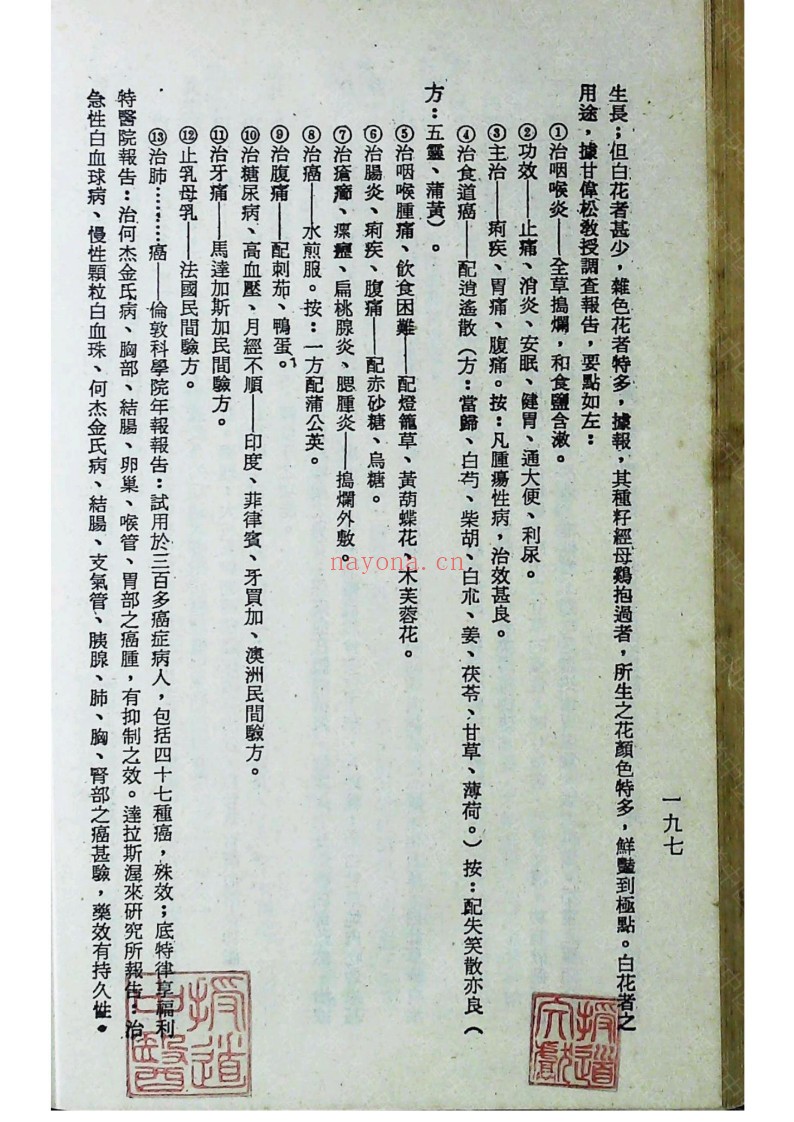 一九七
生長；但白花者甚少，雜色花者特多，據報，其種籽經母鷄抱過者，所生之花顏色特多，鮮豔到極點。白花者之
用途，據甘偉松敎授調查報告，要點如左：
①治咽喉炎——全草搗爛，和食鹽含漱。
②功效——止痛、消炎、安眠、健胃、通大便、利尿。
③主治——痢疾、胃痛、腹痛。按：凡腫瘍性病，治效甚良。
④治食道癌——配逍遙散（方：當歸、白芍、柴胡、白朮、姜、茯苓、甘草、薄荷。）按：配失笑散亦良（
方：五靈、蒲黃）。
⑤治咽喉腫痛、飲食困難——配燈籠草、黃葫蝶花、木芙蓉花。
⑥治腸炎、痢疾、腹痛——配赤砂糖、烏糖。
⑦治瘡癤、瘰癧、扁桃腺炎、腮腫炎——搗爛外敷。
⑧治癌——水煎服。按：一方配蒲公英。
⑨治腹痛——配刺茄、鴨蛋。
⑩治糖尿病、高血壓、月經不順——印度、菲律賓、牙買加、澳洲民間驗方。
⑪治牙痛——馬達加斯加民間驗方。
⑫止乳母乳——法國民間驗方。
⑬治肺………癌——倫敦科學院年報報告：試用於三百多癌症病人，包括四十七種癌，殊效；底特律享福利
特醫院報告：治何杰金氏病、胸部、結腸、卵巢、喉管、胃部之癌腫，有抑制之效。達拉斯渥來研究所報告：治
急性白血球病、慢性顆粒白血珠、何杰金氏病、結腸、支氣管、胰腺、肺、胸、腎部之癌甚驗，藥效有持久性。
nayona.cn
授道
中醫
授道